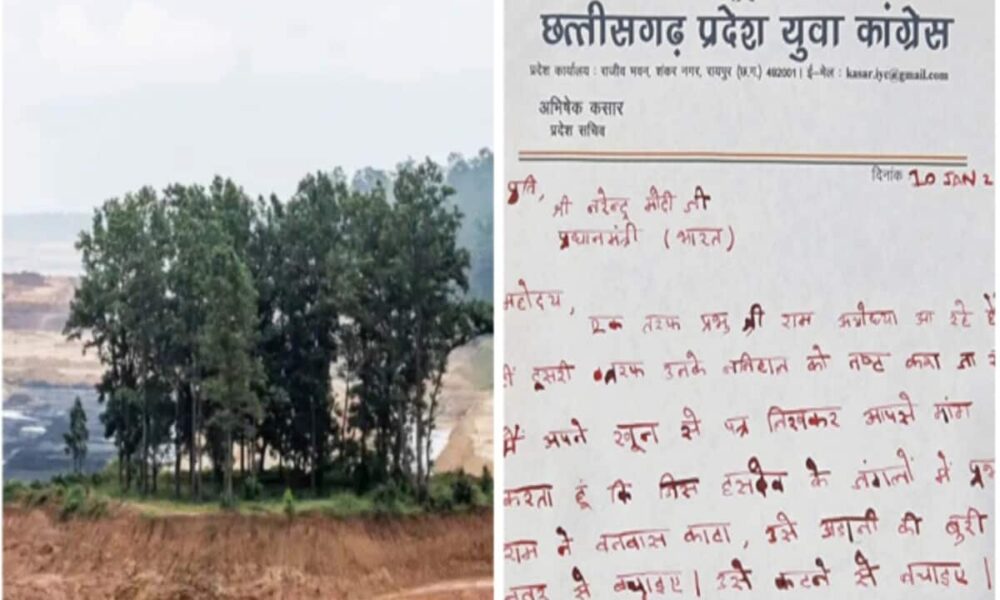 छत्तीसगढ़ प्रदेश युवा कांग्रेस
प्रदेश कार्यालय : राजीव भवन, शंकर नगर, रायपुर (छ.ग.) 492001 | ई-मेल : kasar.iyc@gmail.com
अभिषेक कसार
प्रदेश सचिव
दिनांक 10 JAN 2
प्रति,
श्री नरेन्द्र मोदी जी
प्रधानमंत्री (भारत)
महोदय,
एक तरफ प्रभु श्री राम अयोध्या आ रहे
दूसरी तरफ उनके ननिहाल को नष्ट करा जा
मैं अपने खून से पत्र लिखकर आपसे मांग
करता हूं कि जिस हसदेव के जंगलों में
राम ने वनवास काटा, उसे अडानी की बुरी
नजर से बचाइए। उसे कटने से बचाइए।